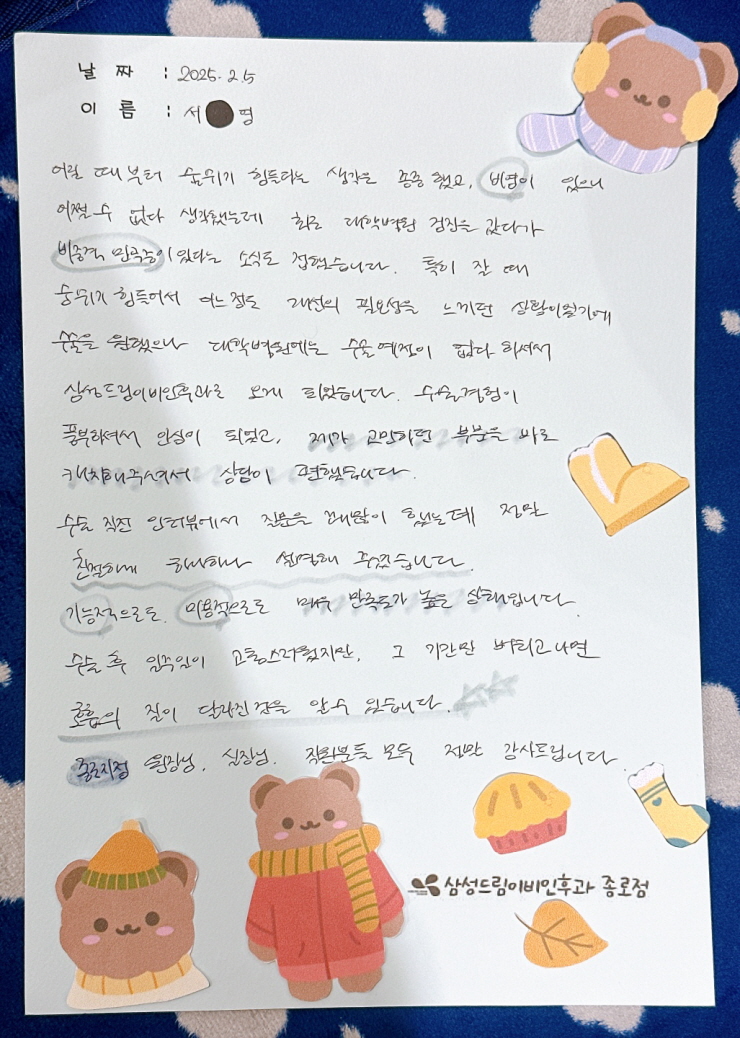 날 짜 : 2025. 2.5
이 름 : 서 영
어릴 때부터 숨쉬기 힘들다는 생각은 종종 했고, 비염이 있으니
어쩔 수 없다 생각했는데 최근 대학병원 검진을 갔다가
비중격 만곡증이 있다는 소식도 접했습니다. 특히 잘 때
숨쉬기 힘들어서 어느정도 개선의 필요성을 느끼던 상황이었기에
수술을 원했으나 대학병원에는 수술예정이 없다 하셔서
삼성드림이비인후과로 오게 되었습니다. 수술경험이
풍부하셔서 안심이 되었고, 제가 고민하던 부분을 바로
캐치해주셔서 상담이 편했습니다.
수술 직전 인터뷰에서 질문을 꽤많이 했는데 정말
친절하게 하나하나 설명해 주셨습니다.
기능적으로도, 미용적으로도 매우 만족도가 높은 상태입니다.
수술 후 일주일이 고통스러웠지만, 그 기간만 버티고나면
호흡의 질이 달라진 것을 알 수 있습니다.
종로지점 원장님, 실장님, 직원분들 모두 정말 감사드립니다.
삼성드림이비인후과 종로점